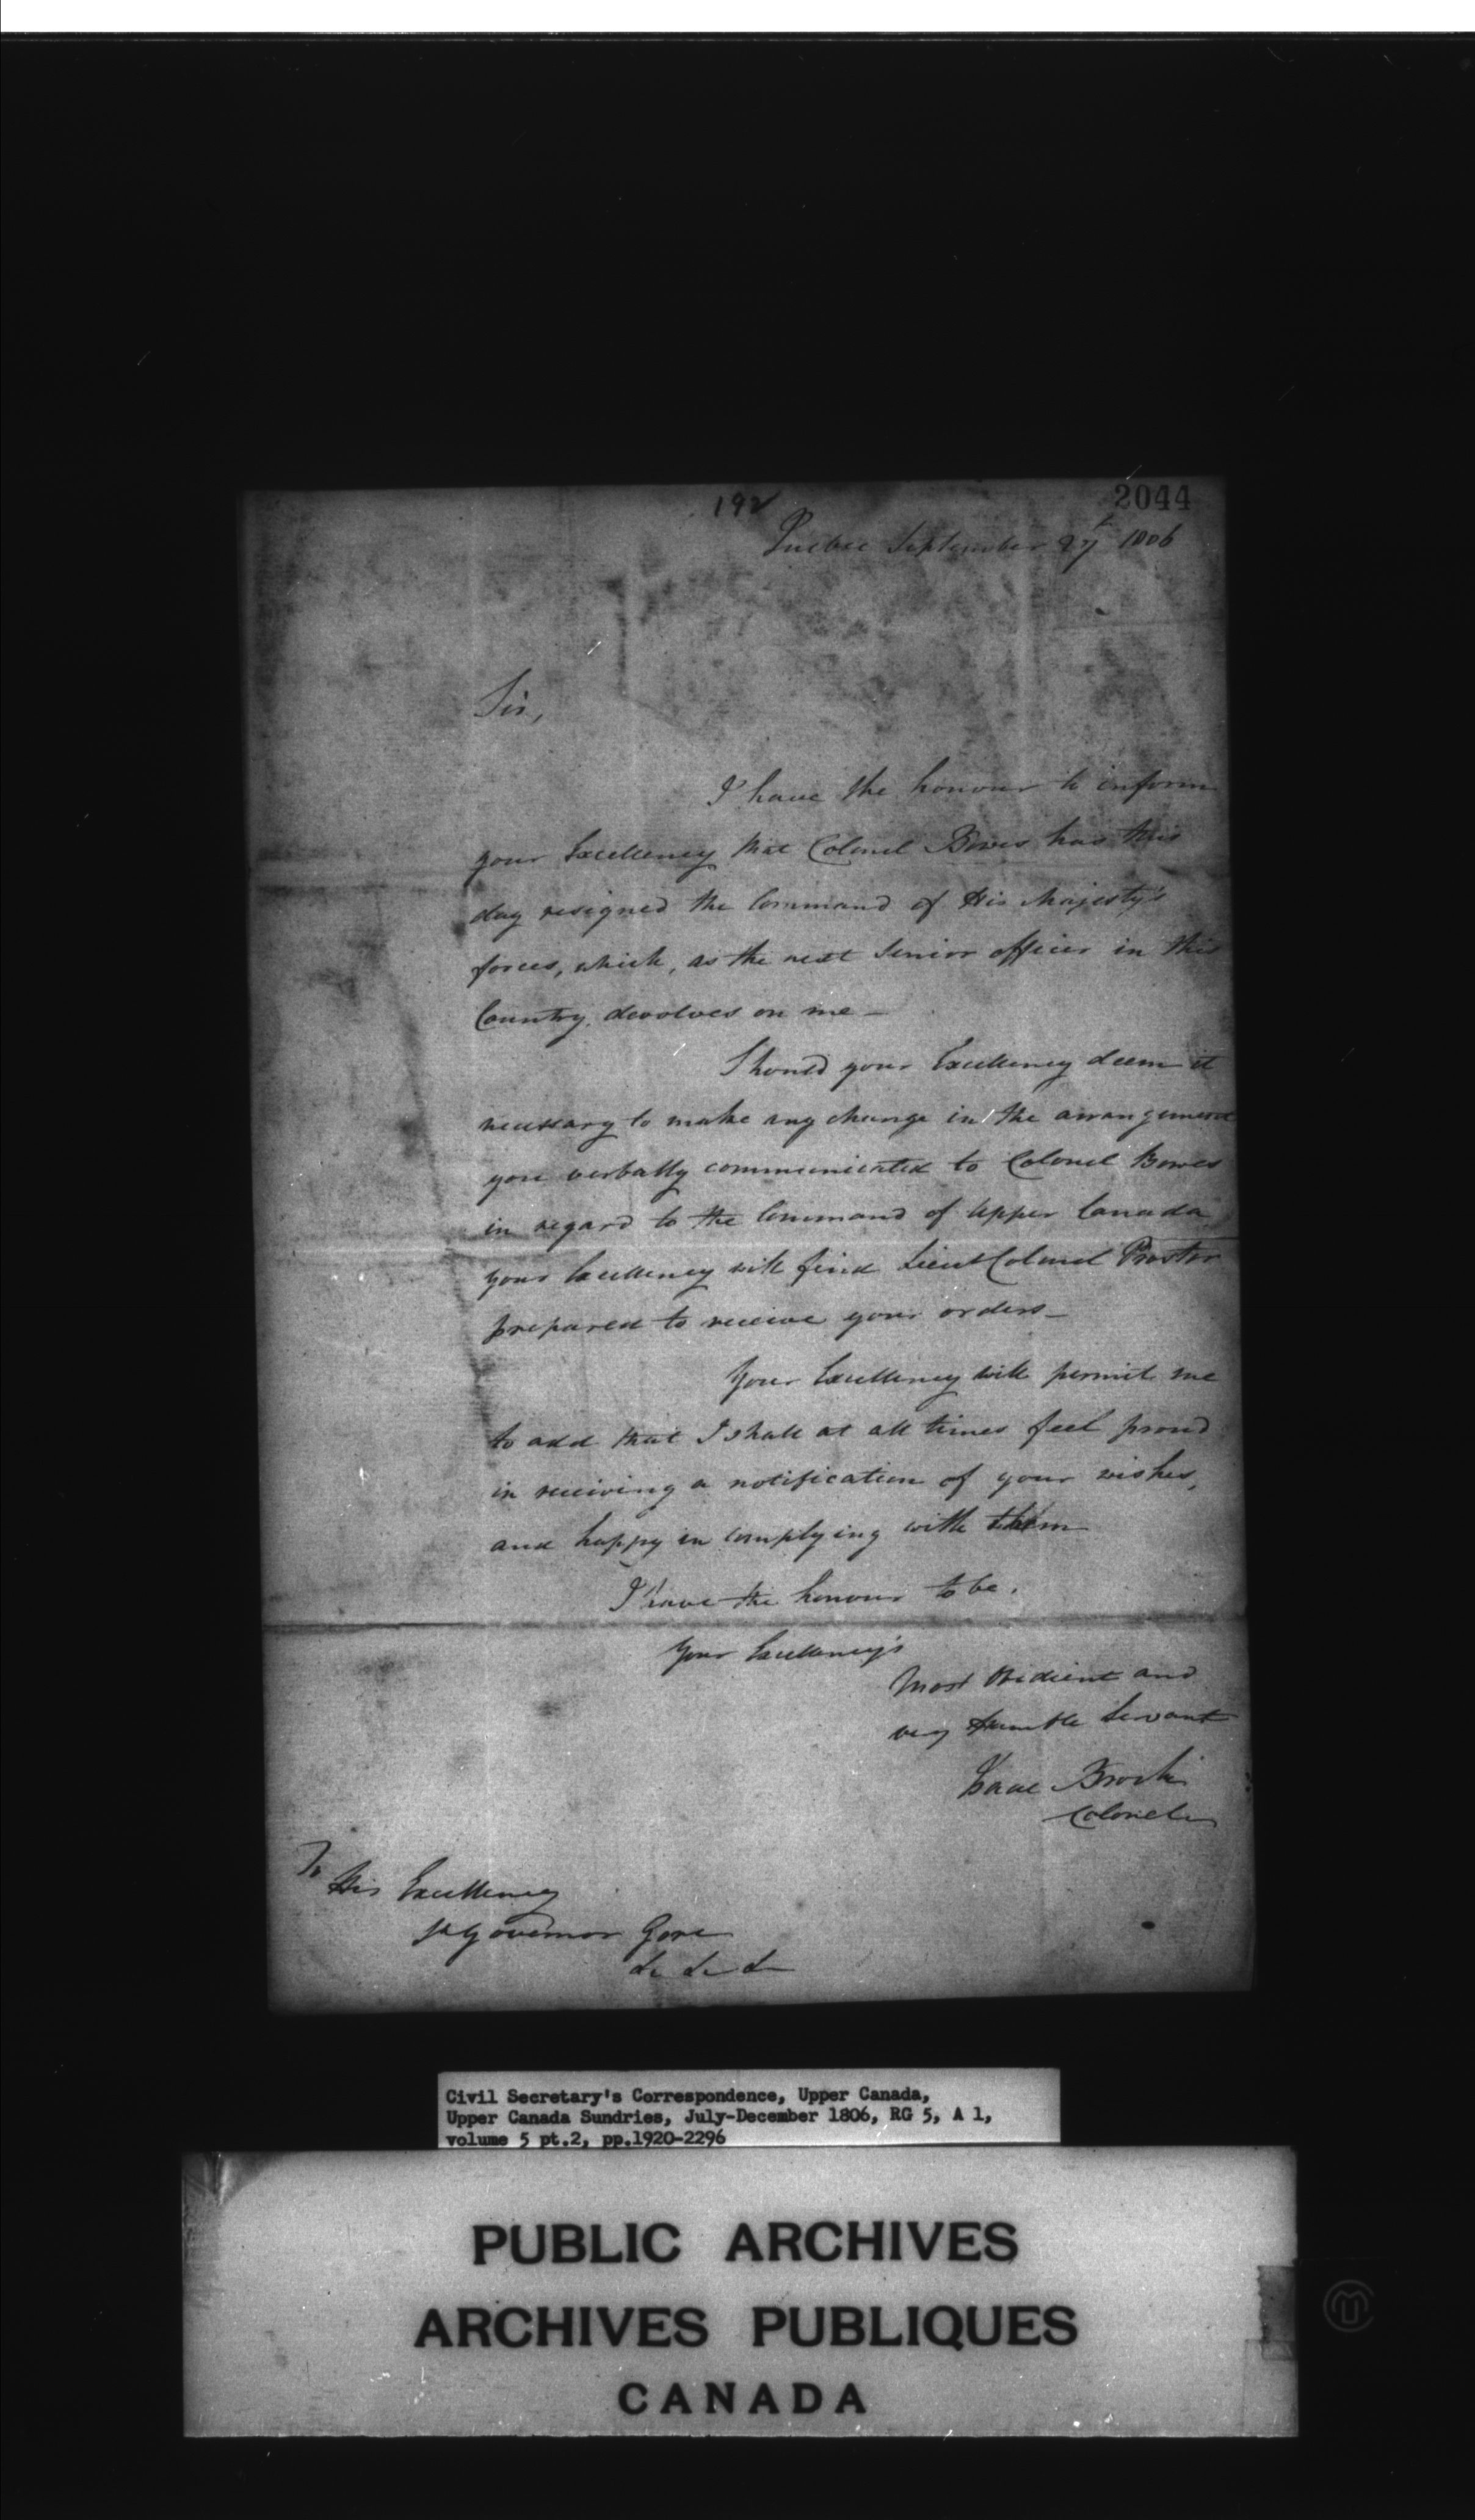 192
2044
Quebec September 27th 1806
Sir,
I have the honour to inform
your Excellency that Colonel Bowes has this
day resigned the Command of His Majesty's
forces, which, as the next Senior officer in this
Country, devolves on me —
Should your Excellency deem it
necessary to make any change in the arrangement
you verbally communicated to Colonel Bowes
in regard to the Command of Upper Canada
your Excellency will find Lieut Colonel Procter
prepared to receive your orders —
Your Excellency will permit me
to add that I shall at all times feel proud
in receiving a notification of your wishes,
and happy in complying with them
I have the honour to be.
Your Excellency's
Most Obedient and
very Humble Servant
Isaac Brock
Colonel
To
His Excellency
Lt Governor Gore
&c &c &c
Civil Secretary's Correspondence, Upper Canada,
Upper Canada Sundries, July-December 1806, RG 5, A 1,
volume 5 pt.2, pp.1920-2296
PUBLIC ARCHIVES
ARCHIVES PUBLIQUES
CANADA